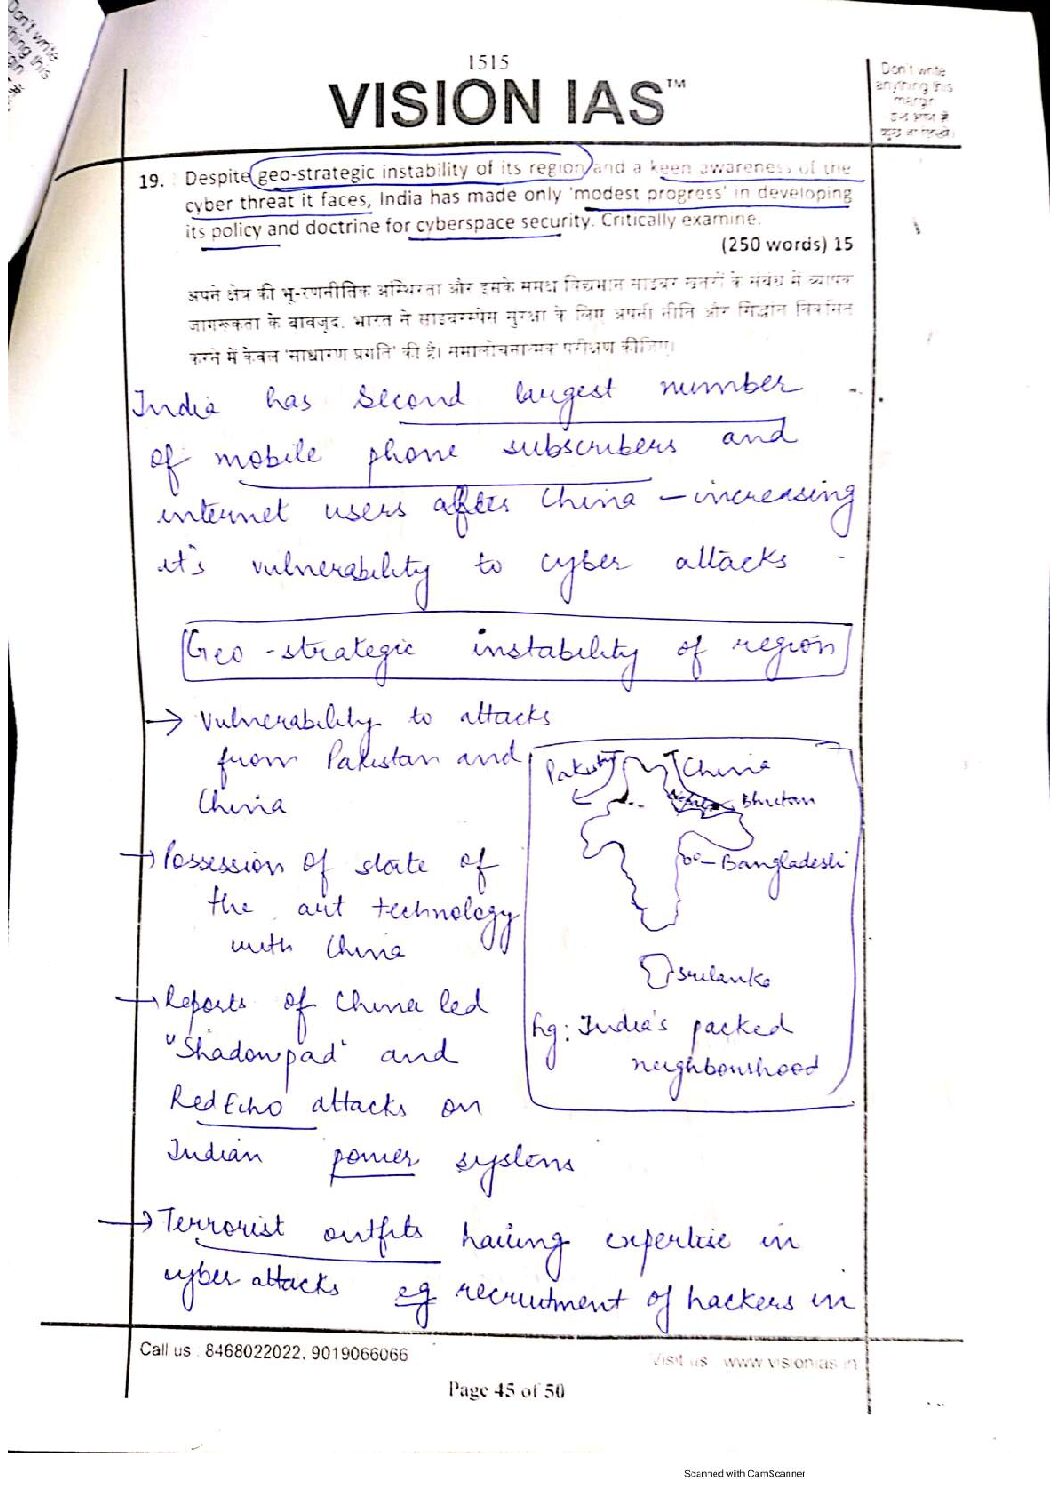 Don't write
thing this
gin
में
1515
VISION IAS™
Don't write
anything this
margin
इस भाग में
कुछ ना लिखें।
19. Despite geo-strategic instability of its region and a keen awareness of the
cyber threat it faces, India has made only 'modest progress' in developing
its policy and doctrine for cyberspace security. Critically examine.
(250 words) 15
अपने क्षेत्र की भू-रणनीतिक अस्थिरता और इसके समक्ष विद्यमान साइबर खतरों के संबंध में व्यापक
जागरूकता के बावजूद, भारत ने साइबरस्पेस सुरक्षा के लिए अपनी नीति और सिद्धांत विकसित
करने में केवल 'साधारण प्रगति' की है। समालोचनात्मक परीक्षण कीजिए।
India has second largest number
of mobile phone subscribers and
internet users after China – increasing
it's vulnerability to cyber attacks
Geo-strategic instability of region
→ Vulnerability to attacks
from Pakistan and
China
→ Possession of state of
the art technology
with China
→ Reports of China led
"Shadowpad" and
RedEcho attacks on
Indian power systems
Pakistan
China
Bhutan
Bangladesh
Srilanka
fig: India's packed
neighbourhood
→ Terrorist outfits having expertise in
cyber attacks eg recruitment of hackers in
Call us : 8468022022, 9019066066
Visit us : www.visionias.in
Page 45 of 50
Scanned with CamScanner